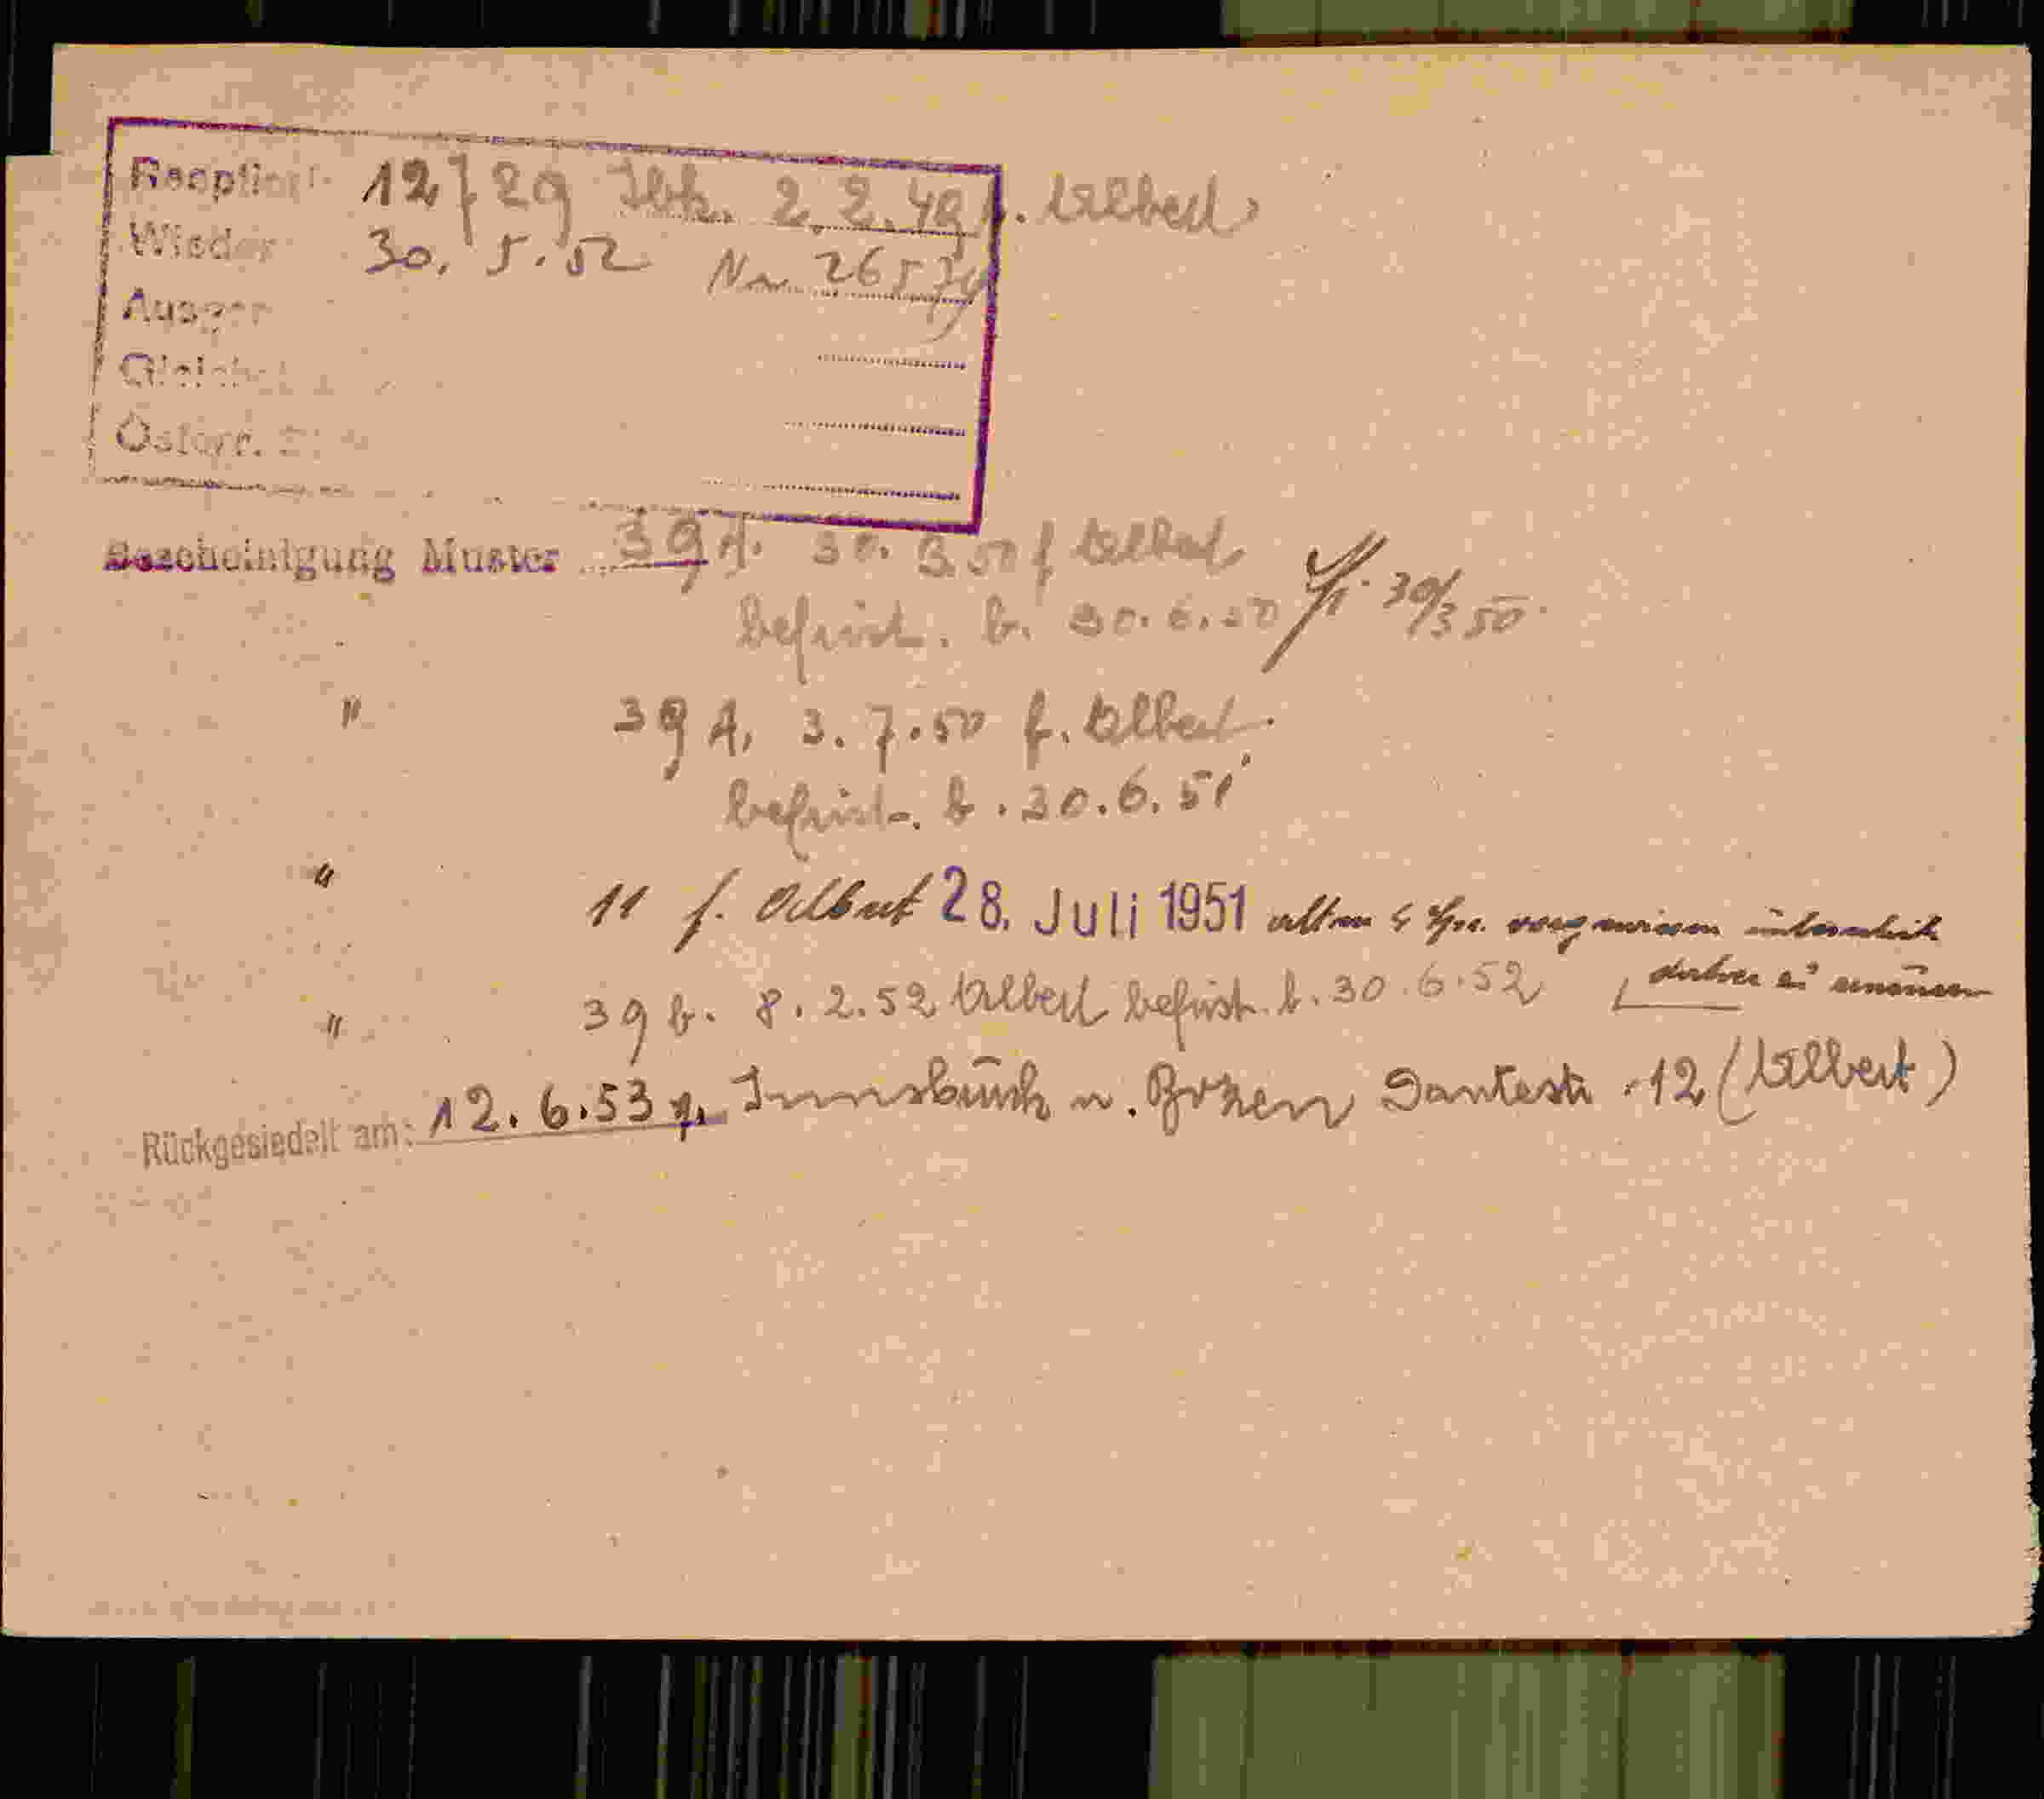 Reoption 12/29 Ibk. 2.2.49 f. Albert
Wieder 30. 5. 52 Nr. 26574
Ausger
Gleich
Österr.
Bescheinigung Muster 39 A. 30. 3. 50 f. Albert
befrist. b. 30. 6. 50 30/3 50
" 39 A. 3. 7. 50 f. Albert
befrist. b. 30. 6. 51
" 11 f. Albert 28. Juli 1951
" 39 b. 8. 2. 52 Albert befrist. b. 30. 6. 52
Rückgesiedelt am: 12. 6. 53 v. Innsbruck n. Bozen Dantestr. 12 (Albert)